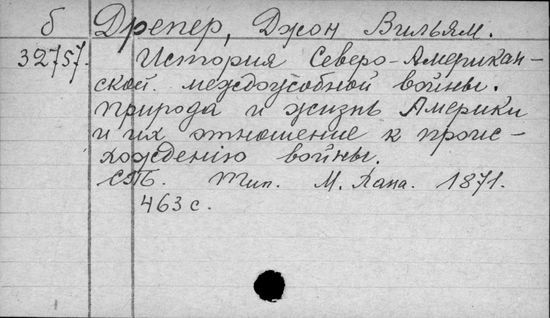 б Дрепер, Джон Вильям.
32757. История Северо-Американ-
ской междоусобной войны.
Природа и жизнь Америки
и их отношение к проис-
хождению войны.
СПб. Тип. М. Хана. 1871.
463 с.